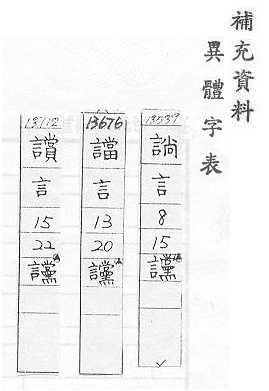 補充資料
異體字表
13539
言
8
15
讜
13676
譡
言
13
20
讜
13712
言
15
22
讜